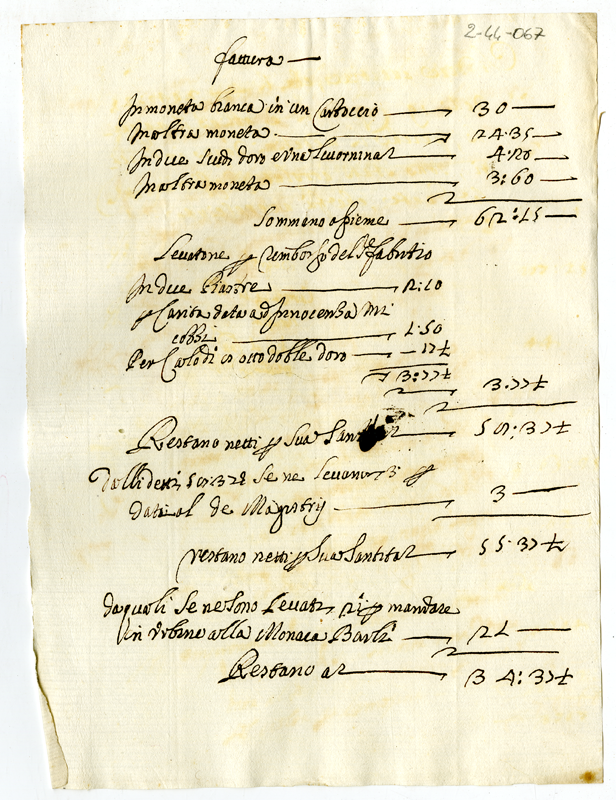 2-44-067
fattura —
In moneta bianca in un Cartoccio — 30 —
In altra moneta — 24.35 —
In due scudi d'oro e una Livornina — 4:20 —
In altra moneta — 3:60 —
Sommano assieme — 62:15 —
Levatone p rimborso del Sre fabritio
In due Piastre — 2:10
p Carita data ad Innocenza Mi
cobbi — 1.50
Per Calo di otto doble d'oro — — 17½
3:77½ 3:77½
Restano netti p Sua — 58:37½
Dalli detti 58:37½ se ne levano 3 p
dati al de Magistris — 3 —
restano netti p Sua Santita — 55.37½
da quali se ne sono Levati 21 p mandare
in Urbino alla Monaca — 21 —
Restano a — 34:37½